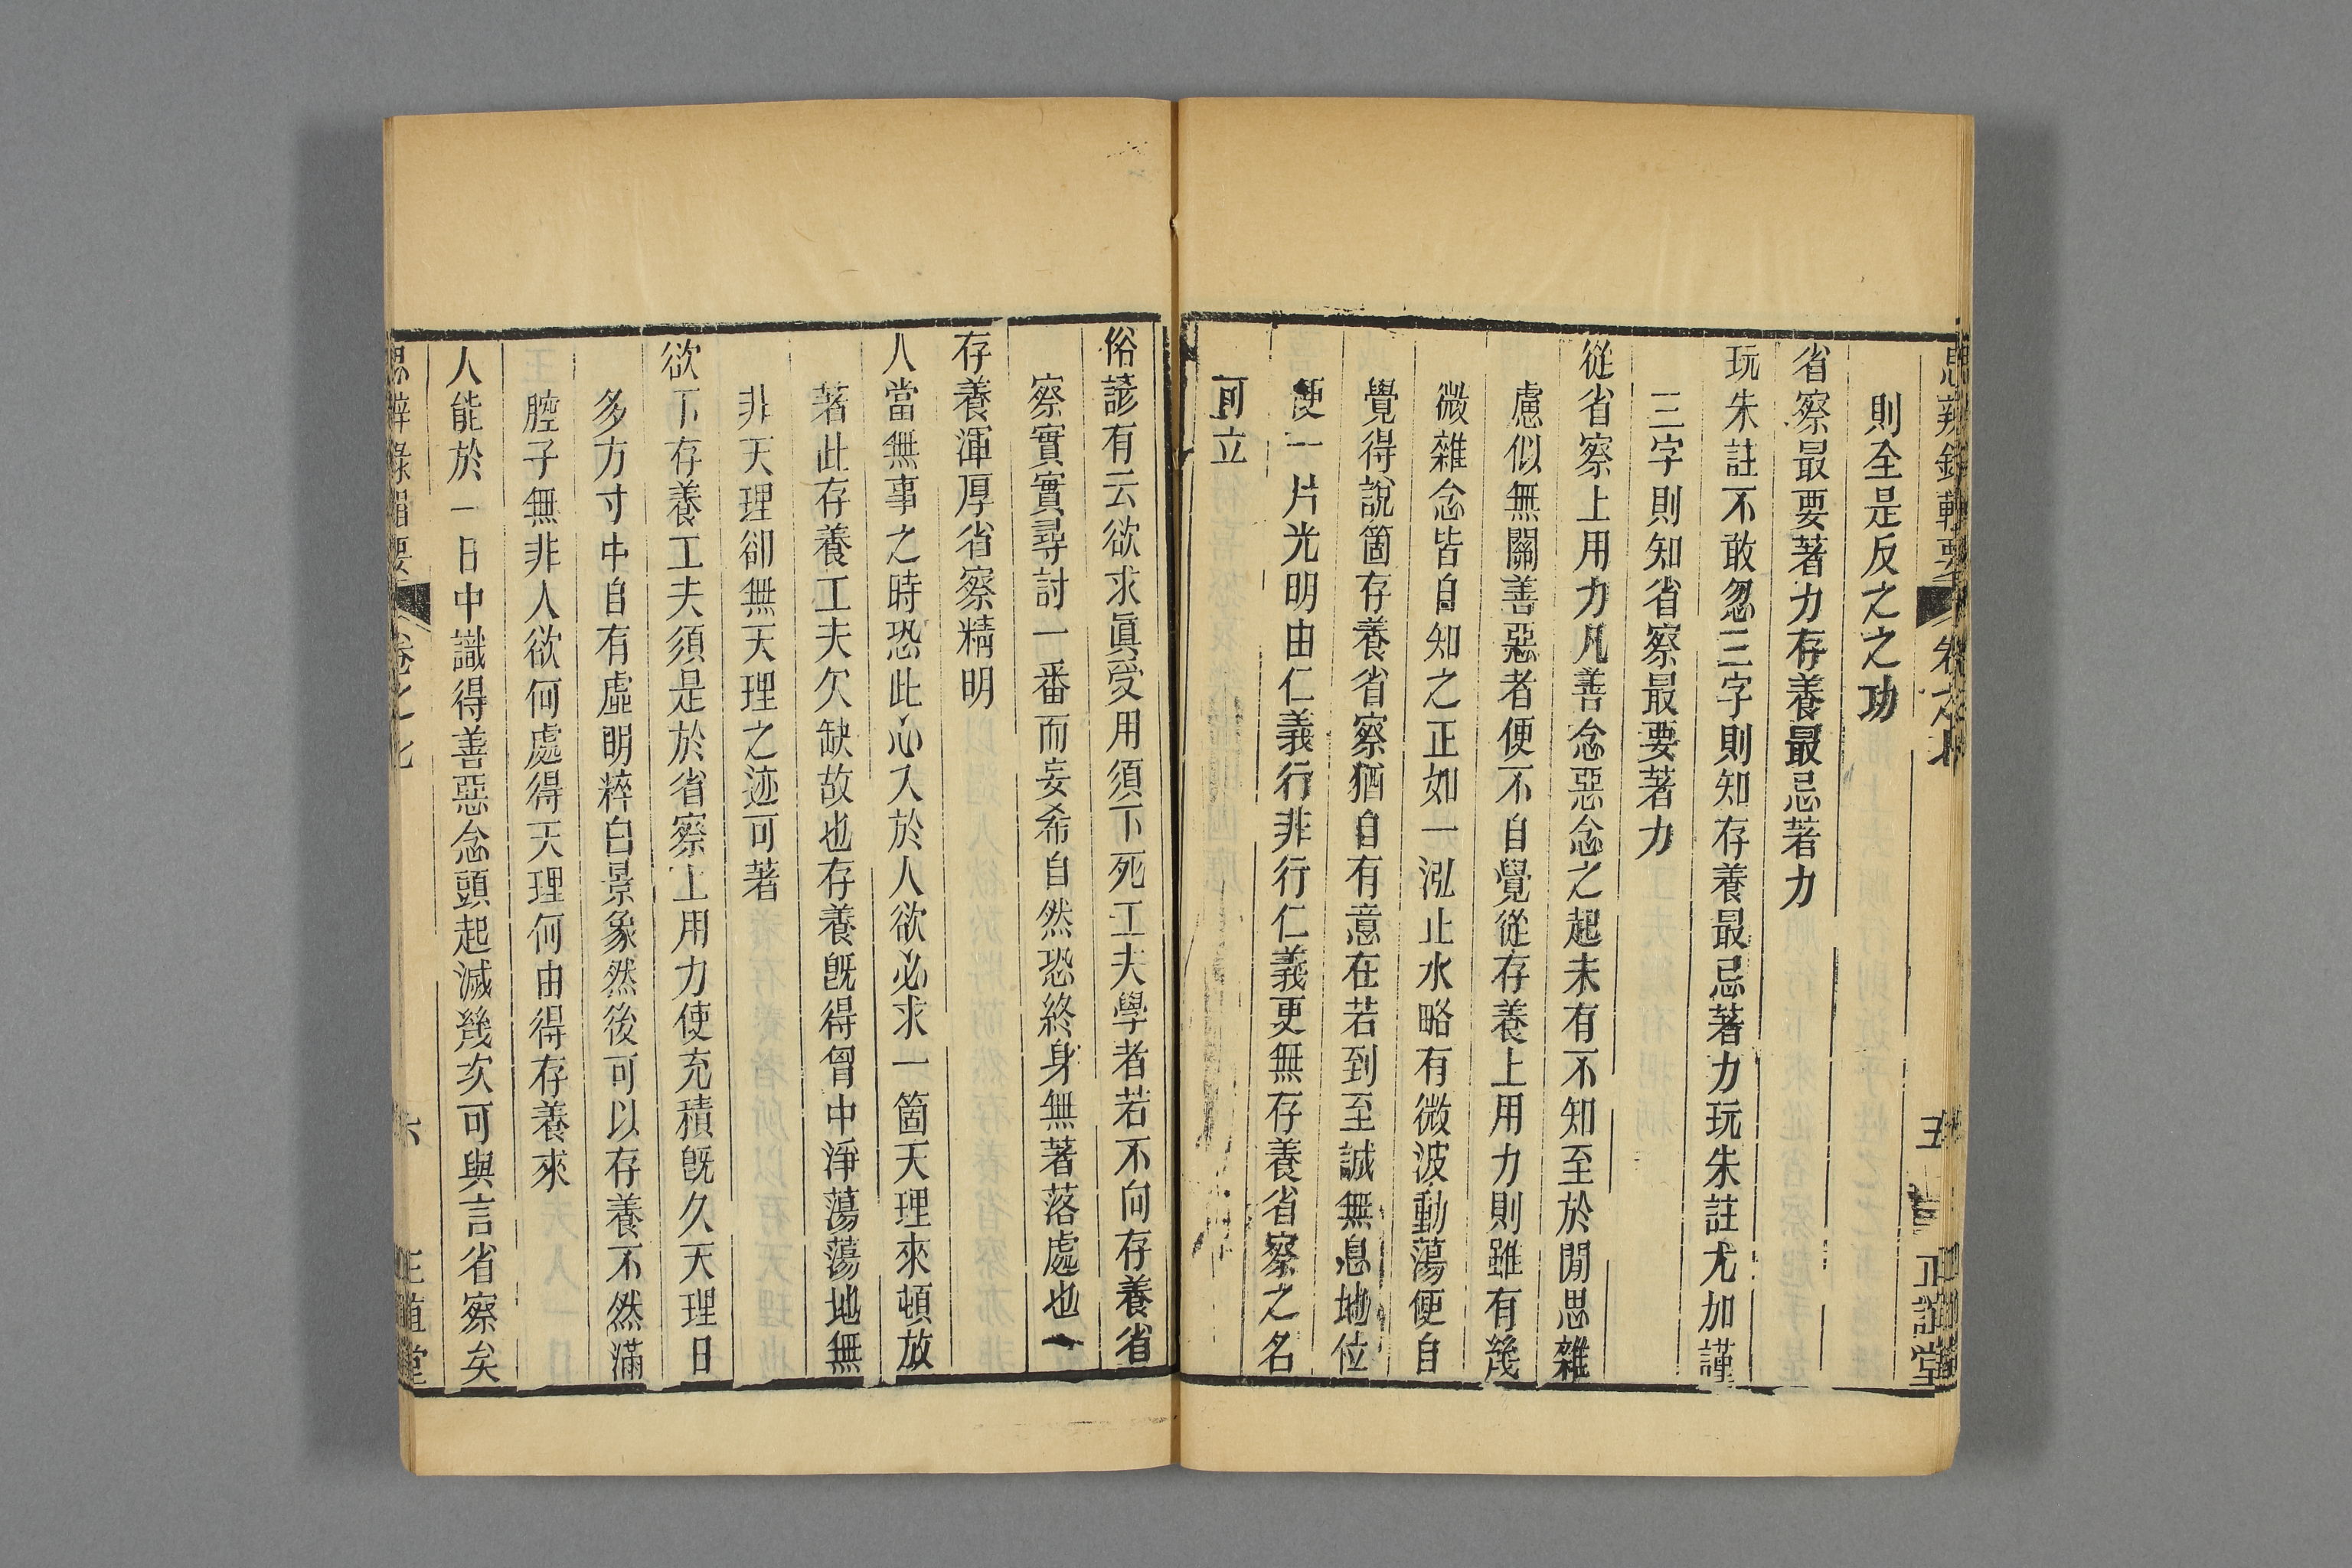 思辨錄輯要 卷之七 五 正誼堂
則全是反之之功
省察最要著力存養最忌著力
玩朱註不敢忽三字則知存養最忌著力玩朱註尤加謹
三字則知省察最要著力
從省察上用力凡善念惡念之起未有不知至於閒思雜
慮似無關善惡者便不自覺從存養上用力則雖有幾
微雜念皆自知之正如一泓止水略有微波動蕩便自
覺得說箇存養省察猶自有意在若到至誠無息地位
便一片光明由仁義行非行仁義更無存養省察之名
可立
俗諺有云欲求眞受用須下死工夫學者若不向存養省
察實實尋討一番而妄希自然恐終身無著落處也
存養渾厚省察精明
人當無事之時恐此心入於人欲必求一箇天理來頓放
著此存養工夫欠缺故也存養旣得胷中淨蕩蕩地無
非天理卻無天理之迹可著
欲下存養工夫須是於省察上用力使充積旣久天理日
多方寸中自有虛明粹白景象然後可以存養不然滿
腔子無非人欲何處得天理何由得存養來
人能於一日中識得善惡念頭起滅幾次可與言省察矣
思辨錄輯要 卷之七 六 正誼堂